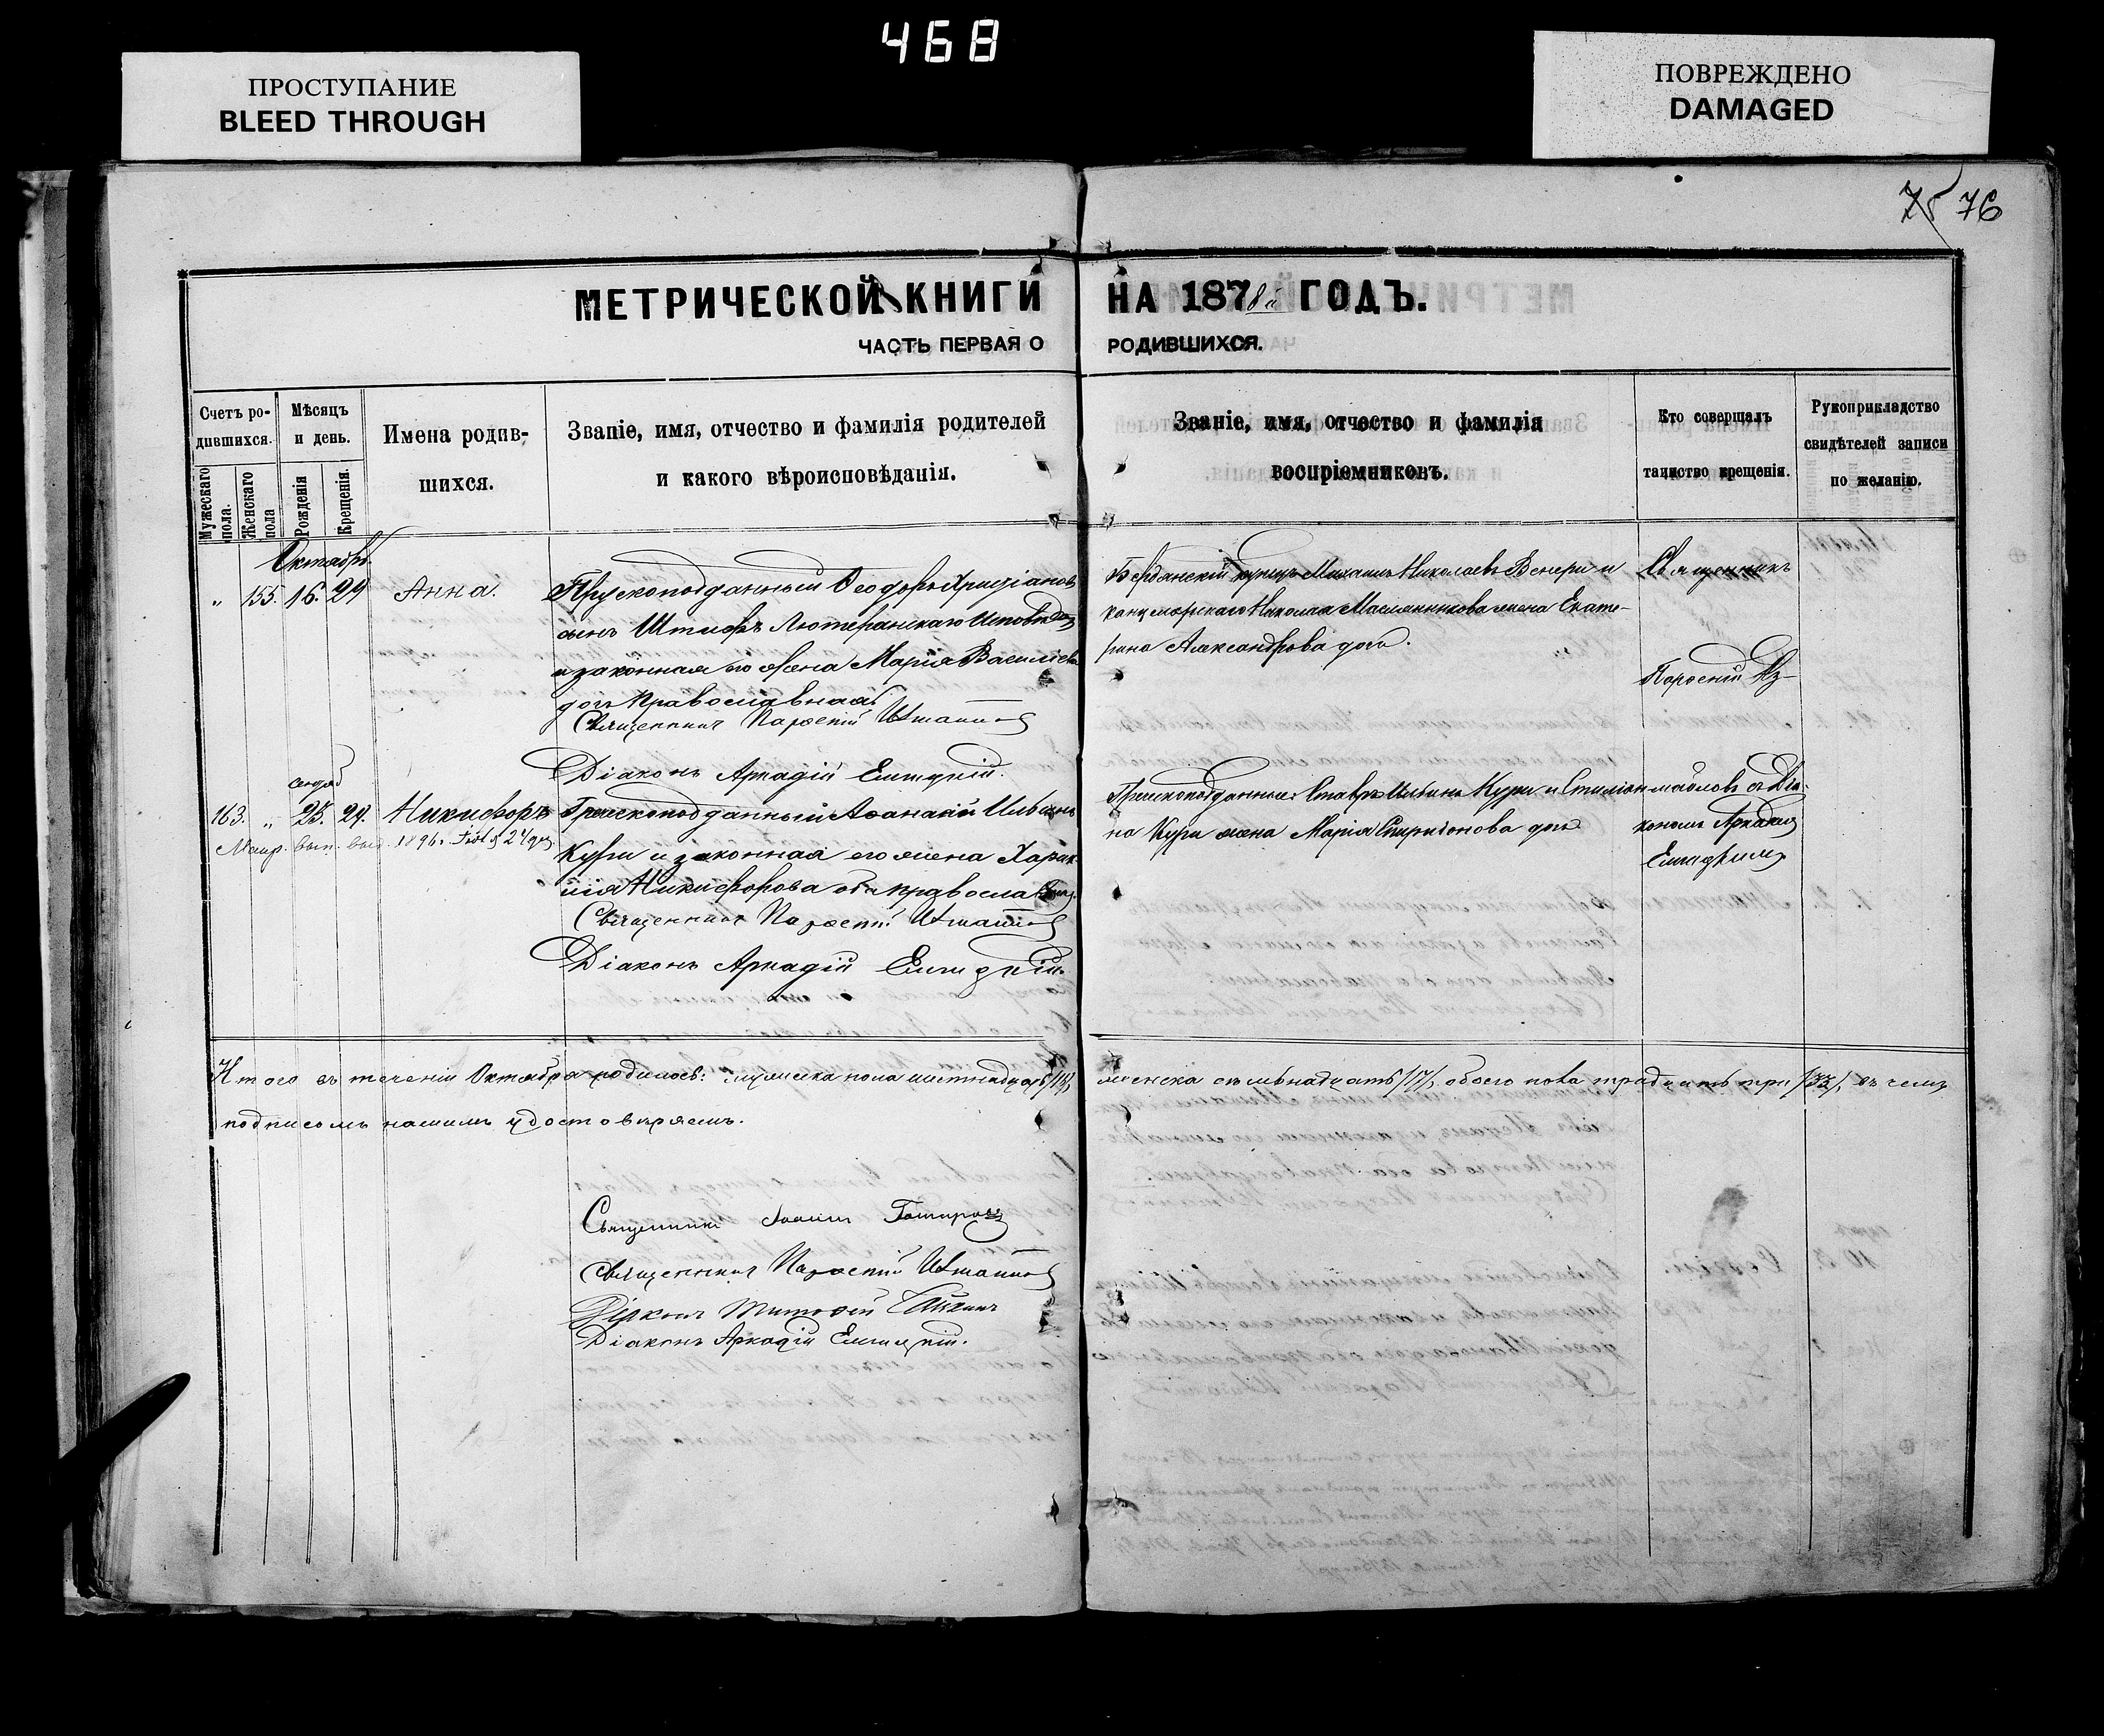 468
ПРОСТУПАНИЕ
BLEED THROUGH
ПОВРЕЖДЕНО
DAMAGED
75 76
МЕТРИЧЕСКОЙ КНИГИ НА 1878й ГОДЪ.
ЧАСТЬ ПЕРВАЯ О РОДИВШИХСЯ.
Счетъ ро-
дившихся.
Мужескаго пола.
Женскаго пола
Мѣсяцъ
и день.
Рожденія
Крещенія.
Имена родив-
шихся.
Званіе, имя, отчество и фамилія родителей
и какого вѣроисповѣданія.
Званіе, имя, отчество и фамилія
воспріемниковъ.
Кто совершалъ
таинство крещенія.
Рукоприкладство
свидѣтелей записи
по желанію.
Октябрь
„ 155. 16. 29 Анна.
Прускоподданный Ѳеодоръ Христіановъ
сынъ Лютеранскаго
и законная его жена Марія Василіева
дочь Православная.
Священникъ Паросній
Діаконъ Аркадій
Бердянскій купецъ Михаилъ Николаевъ Венери и
Николая Масляникова жена Екате-
рина Александрова дочь.
Священникъ
Паросній Из-
163. „ 25. 29. Никифоръ
1896.
Грекоподданный Аѳанасій Ильинъ
Кури и законная его жена Харик-
лія Никифорова оба православные.
Священникъ Паросній
Діаконъ Аркадій
Грекоподданные: Ставръ Ильинъ Кури и Стиліа-
на Кури жена Марія Спиридонова дочь
маиловъ съ Діа-
кономъ Аркадіемъ
Итого въ теченіи Октября родилось: мужеска пола шестнадцать /16/, женска семьнадцать /17/, обоего пола тридцать три /33/, въ чемъ
подписомъ нашимъ удостовѣряемъ.
Священникъ
Священникъ Паросній
Діаконъ
Діаконъ Аркадій